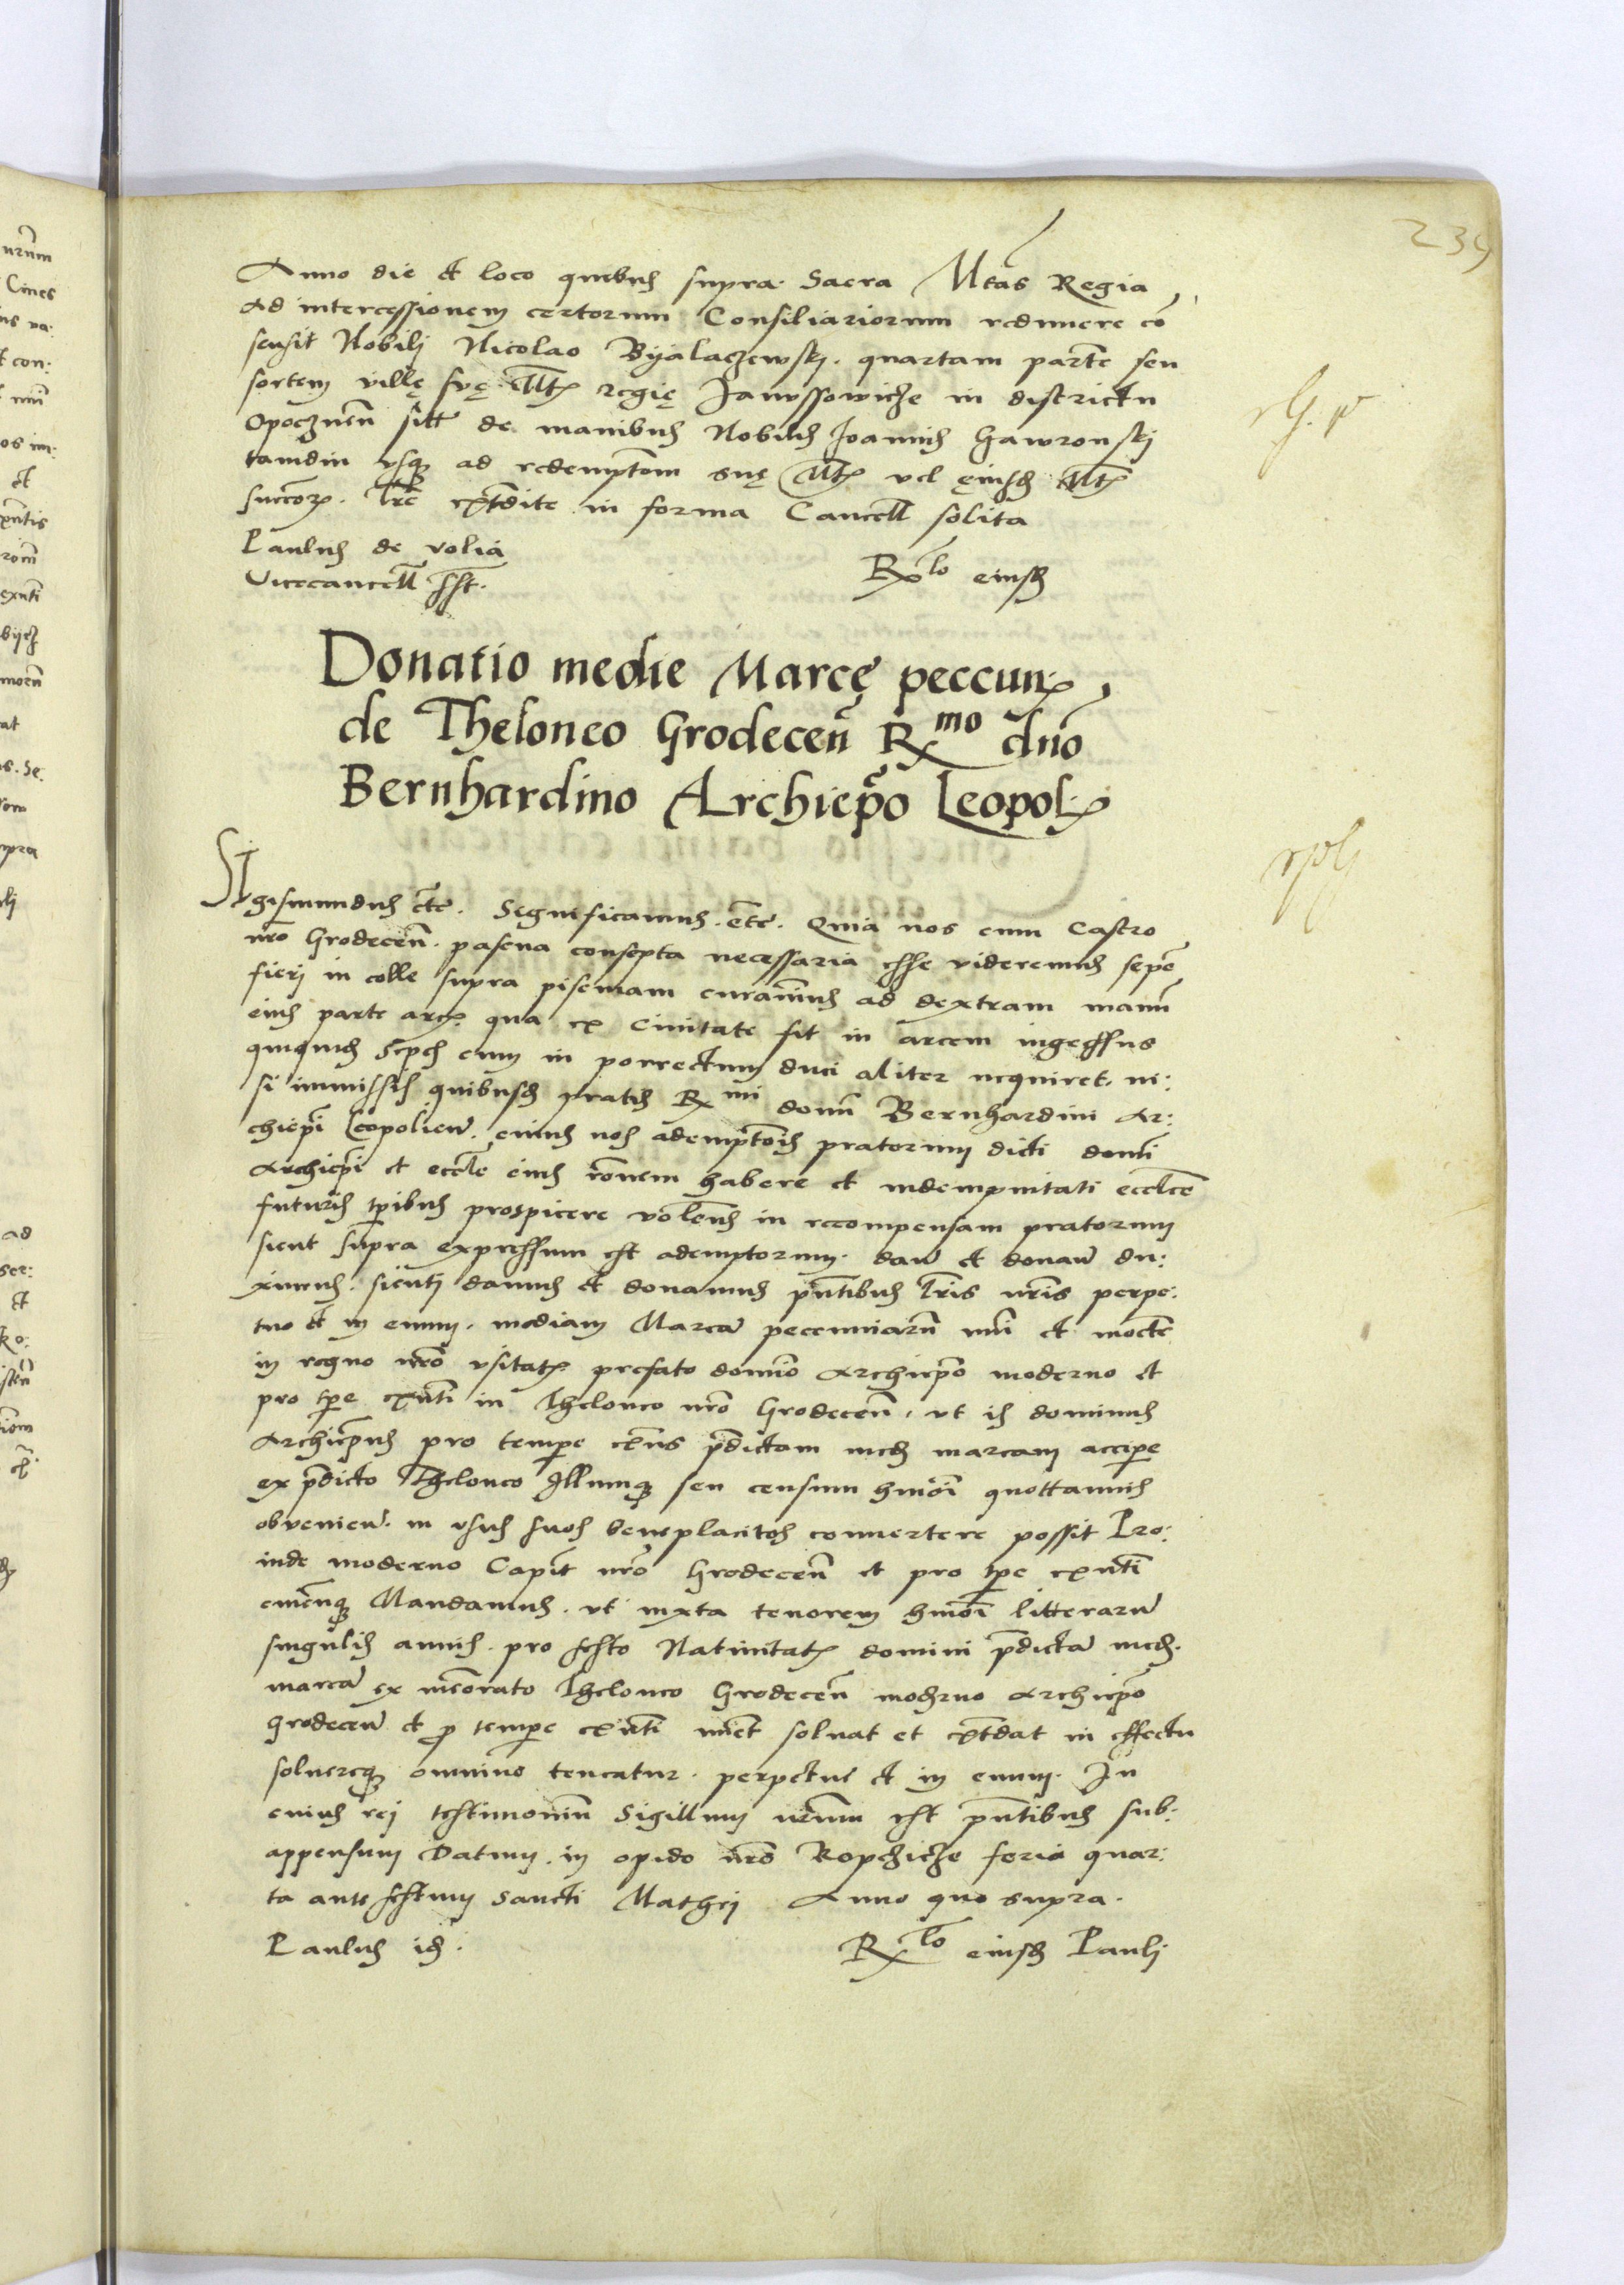 239
Anno die et loco quibus supra. Sacra Mtas Regia,
ad intercessionem certorum Consiliariorum redimere cō
sensit Nobilj Nicolao Byalaczewskj. quartam partē seu
sortem villę suę Mtis regię Janussowicze in districtu
Opocznen̄ sitt de manibus Nobilis Joannis Gawronskj
tamdiu vsq3 ad redemptōm suę Mtis vel eiusd Mtis
succorz. Lrē extradite in forma Cancell solita
Paulus de volia
Vicecancell sst. Rlo eiusd
Donatio medie Marcę peccun,
de Theloneo Grodecen̄ Rmo dn̄o
Bernhardino Archiep̄o Leopol
Sigismundus etc. Significamus. etc. Quia nos cum Castro
nrō Grodecen̄. pascua consepta necessaria esse videremus sepē
fierj in colle supra piscinam curavimus ad dextram manū
eius parte arcis qua ex Ciuitate fit in arcem ingressus
quiquid sepes cum in porrectum duci aliter nequiret, ni:
si immissis quibusd pratis Rmi domī Bernhardini Ar:
chiep̄i Leopolien̄. cuius nos ademptōis pratorum dicti domī
Archiep̄i et eccl̄e eius rōnem habere et indempnitati eccl̄ee
futuris tp̄ibus prospicere volen̄s in recompensam pratorum
sicut supra expressum est ademptorum. dare et donare du:
ximus. sicutj damus et donamus p̄ntibus Lrīs nrīs perpe:
tuo et in euum. mediam Marcā peccuniarū nūi et monetē
in regno nrō vsitat prefato domīo Archiep̄o moderno et
pro tp̄e exn̄ti in Theloneo nrō Grodecen̄, vt is dominus
Archiep̄us pro tempe exn̄s p̄dictam med marcam accipe
ex p̄dicto Theloneo Illumq3 seu censum hmōi quottannis
obvenien̄. in vsus suos beneplacitos conuertere possit Pro:
inde moderno Capit nrō Grodecen̄ et pro tp̄e exn̄ti
Mandamus. vt iuxta tenorem hmōi litterarū
singulis annis. pro festo Natiuitatis domini p̄dictā med.
marcā ex memorato Theloneo Grodecen̄ moderno Archiep̄o
Grodecen̄ et p tempe exn̄ti soluat et extradat in effectu
soluereq3 omnino teneatur. perpetue et in euum. In
cuius rej testimoniū Sigillum nrūm est p̄ntibus sub:
appensum Datum. in opido nrō Ropczicze feria quar:
ta ante festum Sancti Mathej Anno quo supra.
Paulus id. Rlo eiusd Paulj